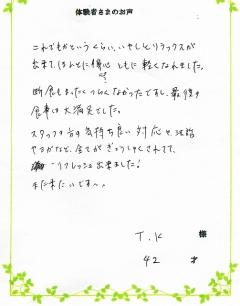 体験者さまのお声
これでもかというくらい、いやしとリラックスが
出来て、ほんとに身心ともに軽くなれました。
断食もまったくつらくなかったですし、最後の
食事は大満足でした。
スタッフの方の気持ち良い対応と、法話
やヨガなど、全てがぎょうしゅくされてて、
リフレッシュ出来ました!
また来たいです〜。
T.K 様
42 才